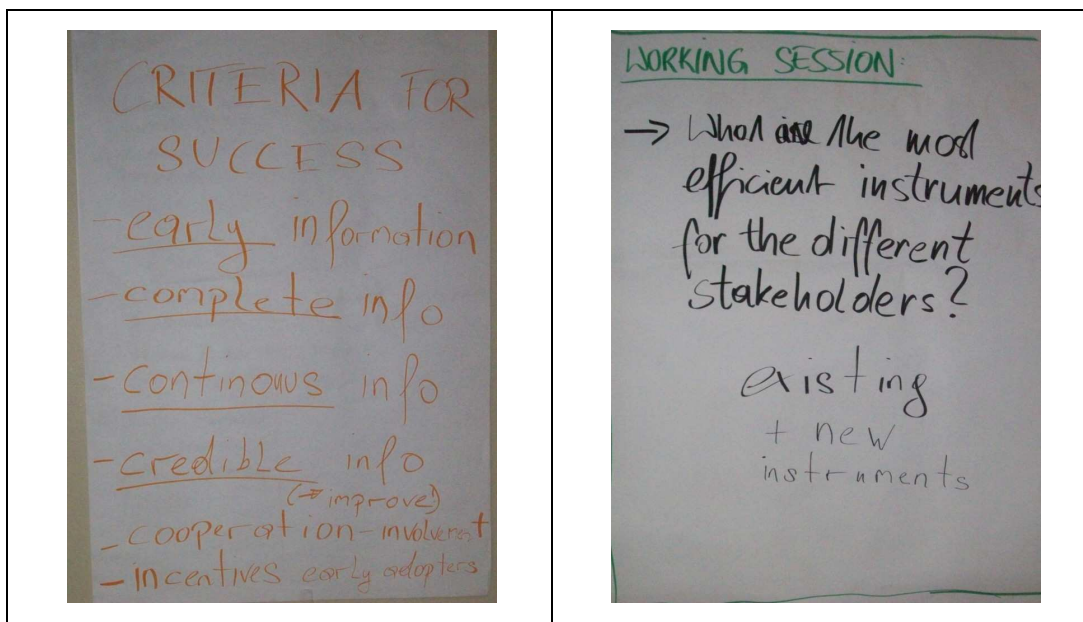 CRITERIA FOR
SUCCESS
- early information
- complete info
- continous info
- credible info
(→ improve)
- cooperation - involvement
- incentives early adopters
WORKING SESSION:
→ What are the most
efficient instruments
for the different
stakeholders?
existing
+ new
instruments